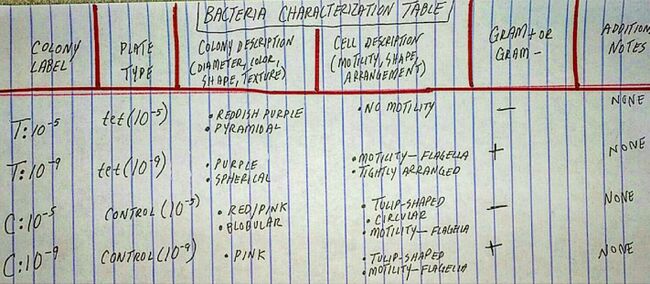 BACTERIA CHARACTERIZATION TABLE
COLONY LABEL PLATE TYPE COLONY DESCRIPTION (DIAMETER, COLOR, SHAPE, TEXTURE) CELL DESCRIPTION (MOTILITY, SHAPE, ARRANGEMENT) GRAM + OR GRAM - NOTES
T:10-5 tet(10-5) • REDDISH PURPLE • PYRAMIDAL • NO MOTILITY - NONE
T:10-9 tet(10-9) • PURPLE • SPHERICAL • MOTILITY-FLAGELLA • TIGHTLY ARRANGED + NONE
C:10-5 CONTROL(10-5) • RED/PINK • BLOBULAR • TULIP-SHAPED • CIRCULAR • MOTILITY-FLAGELLA - NONE
C:10-9 CONTROL(10-9) • PINK • TULIP-SHAPED • MOTILITY-FLAGELLA + NONE